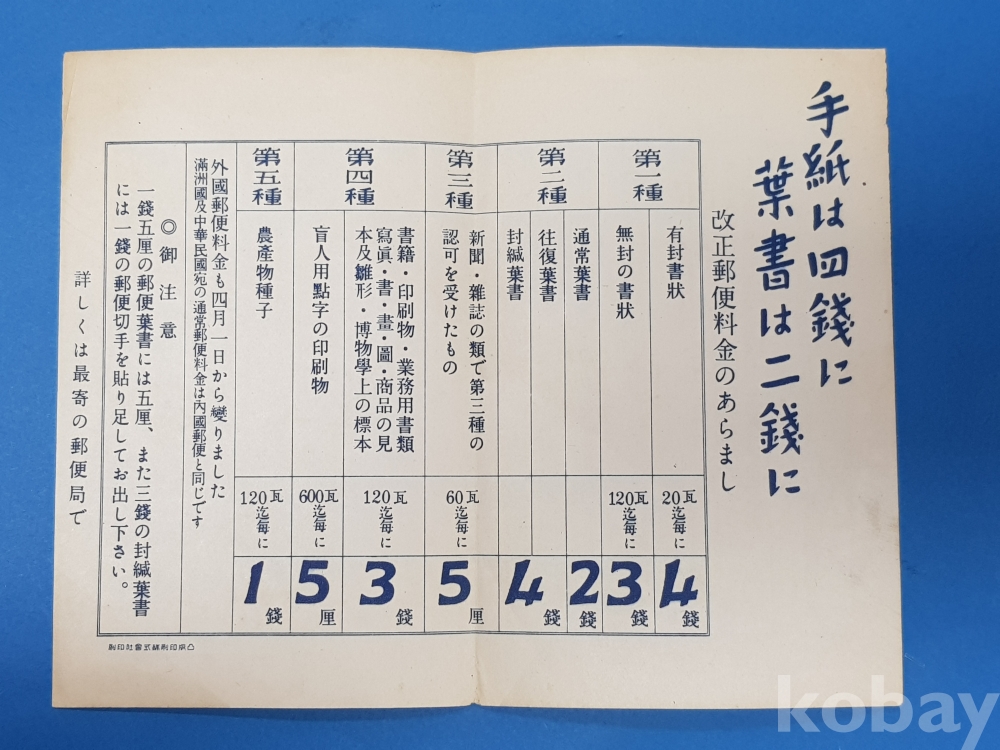 手紙は四錢に
葉書は二錢に
改正郵便料金のあらまし
第一種
有封書狀
20瓦迄每に
4錢
無封の書狀
120瓦迄每に
3錢
第二種
通常葉書
2錢
往復葉書
封緘葉書
4錢
第三種
新聞・雜誌の類で第三種の
認可を受けたもの
60瓦迄每に
5厘
第四種
書籍・印刷物・業務用書類
寫眞・書・畫・圖・商品の見
本及雛形・博物學上の標本
120瓦迄每に
3錢
盲人用點字の印刷物
600瓦迄每に
5厘
第五種
農產物種子
120瓦迄每に
1錢
外國郵便料金も四月一日から變りました
滿洲國及中華民國宛の通常郵便料金は內國郵便と同じです
◎御注意
一錢五厘の郵便葉書には五厘、また三錢の封緘葉書
には一錢の郵便切手を貼り足してお出し下さい。
詳しくは最寄の郵便局で
凸版印刷株式會社印刷
kobay